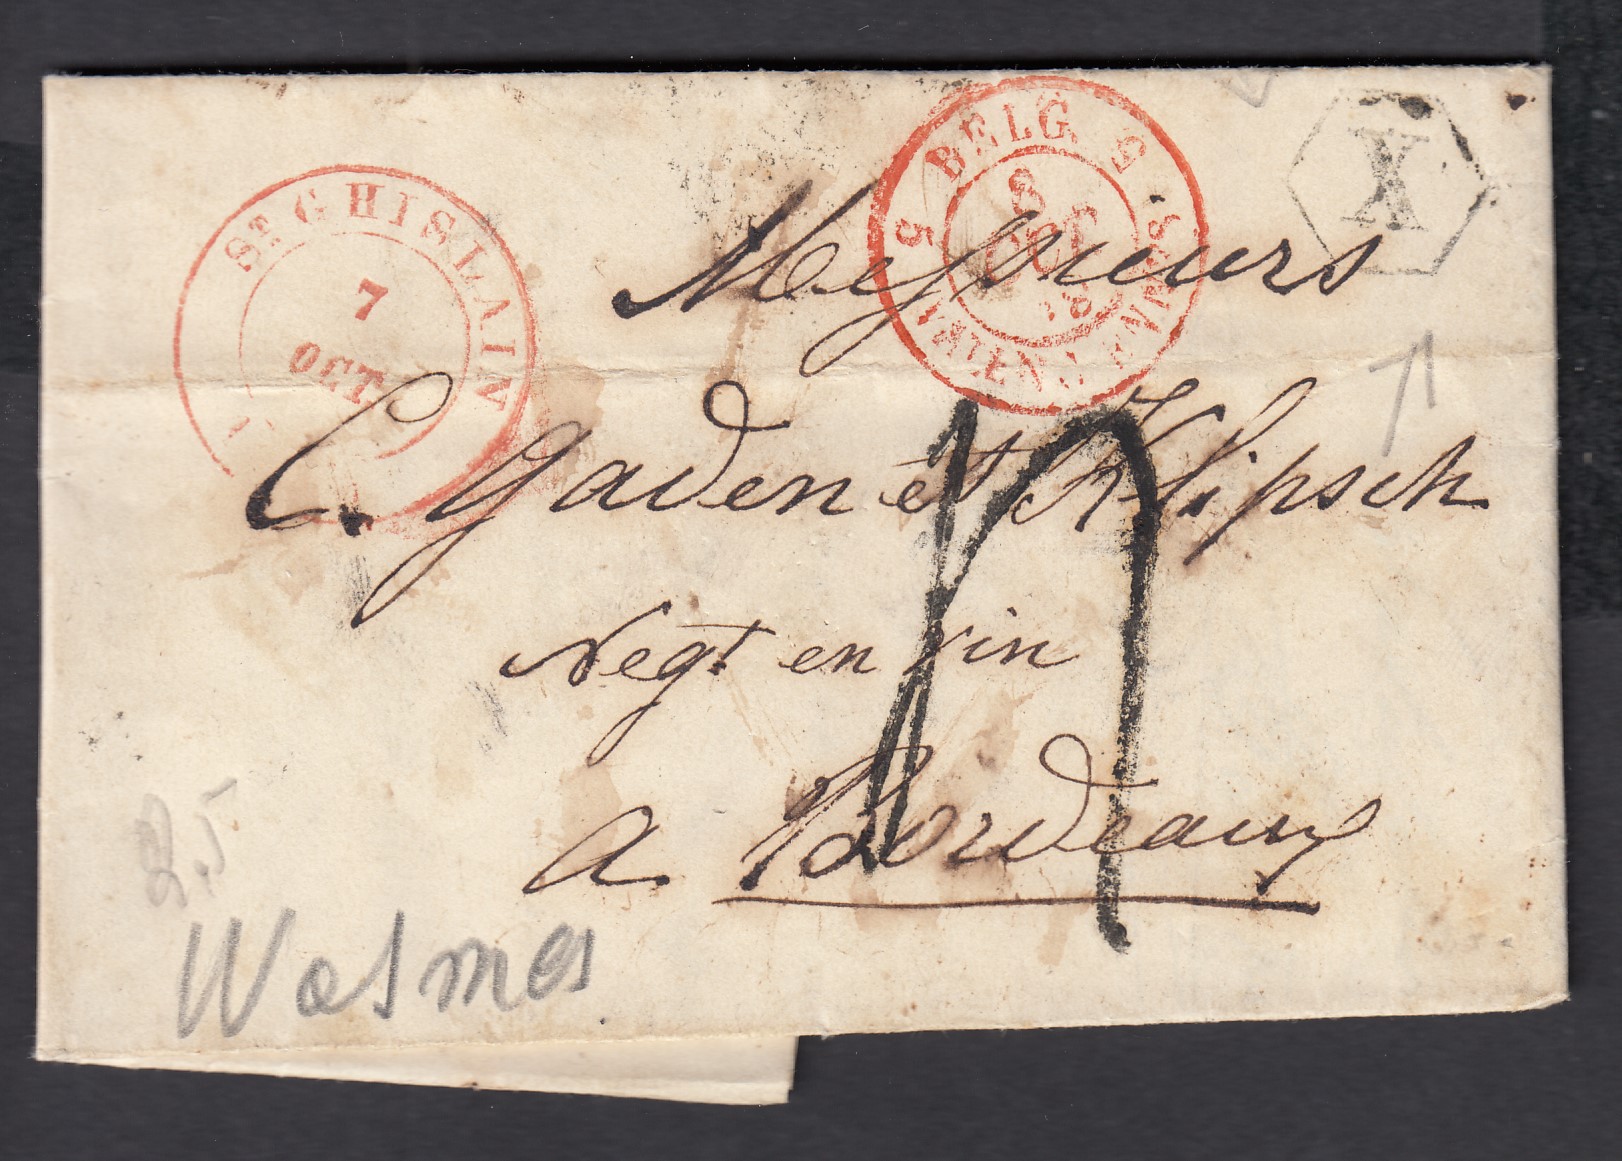 ST. GHISLAIN
7
OCT.
BELG.
5 VALENCIENNES. 5
8
OCT
X
Messieurs
C. Gaden et Klipsch
Negt. en vin
a Bordeaux
25
Wasmes